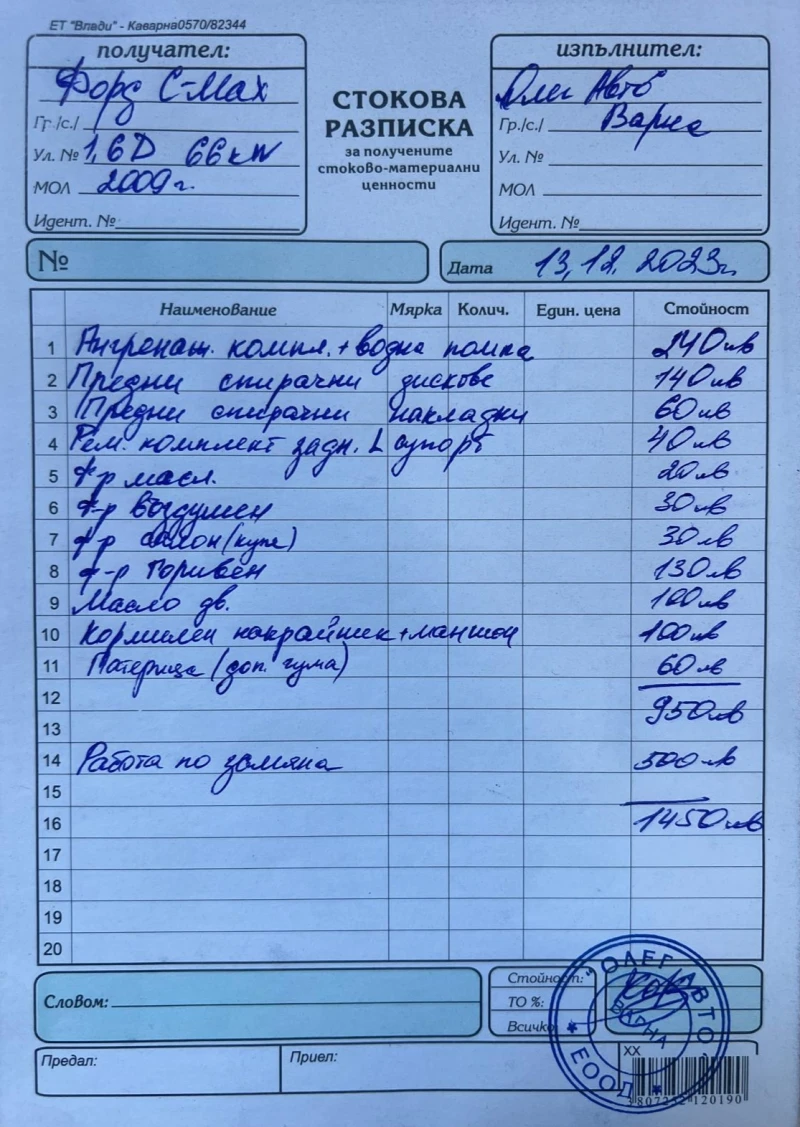 ЕТ "Влади" - Каварна0570/82344
получател:
Форд C-Max
Гр./с./
Ул. № 1,6D 66kW
МОЛ 2009 г.
Идент. №
СТОКОВА
РАЗПИСКА
за получените
стоково-материални
ценности
изпълнител:
Олег Авто
Гр./с./ Варна
Ул. №
МОЛ
Идент. №
№
Дата 13,12, 2023г.
Наименование Мярка Колич. Един. цена Стойност
1 Ангренаж. компл.+водна помпа 240лв
2 Предни спирачни дискове 140лв
3 Предни спирачни накладки 60лв
4 Рем. комплект задн. L супорт 40лв
5 ф-р масл. 20лв
6 ф-р въздушен 30лв
7 ф-р салон(купе) 30лв
8 ф-р горивен 130лв
9 Масло дв. 100лв
10 Кормилен накрайник+маншон 100лв
11 Патерица (доп. гума) 60лв
12
950лв
13
14 Работа по замяна 500лв
15
16 1450лв
17
18
19
20
Словом:
Стойност:
ТО %:
Всичко
"ОЛЕГ АВТО"
ВАРНА
ЕООД
Предал:
Приел:
XX
3807232120190